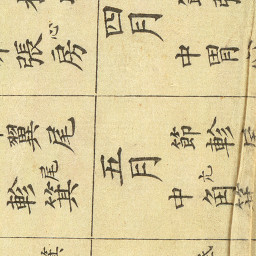 胃
中
四月
心房
張
箕
軫亢角
節中
五月
尾尾箕
翼軫
箕